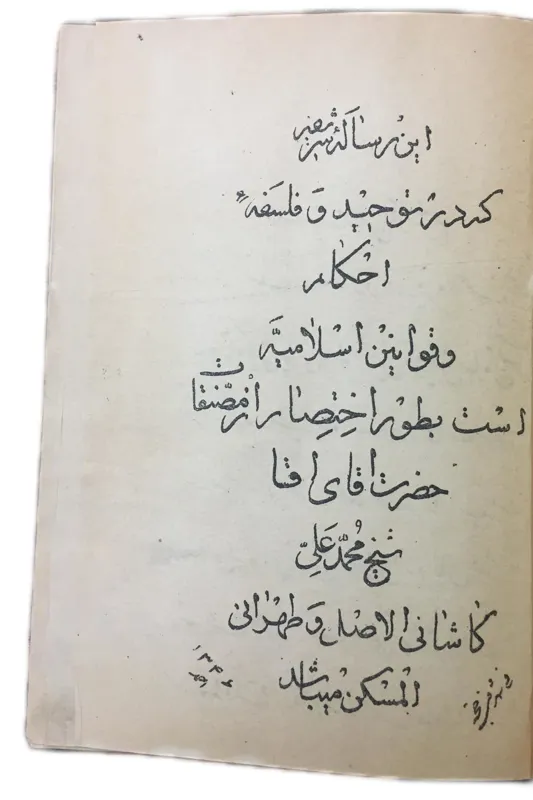 این رسالهٔ شریفه
که در توحید و فلسفهٔ
احکام
و قوانین اسلامیّه
است بطور اختصار از مصنّفات
حضرت آقای آقا
شیخ محمّد علیّ
کاشانی الاصل و طهرانی
المسکن میباشد
۱۳۴۶